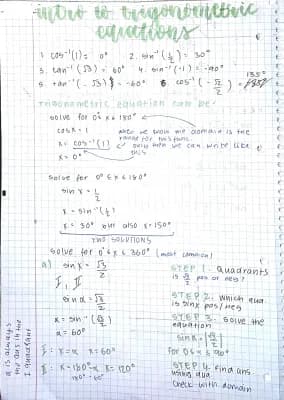 intro to trigonometric equations
1. cos⁻¹(1) = 0°    2. sin⁻¹(½) = 30°
3. tan⁻¹(√3) = 60°    4. sin⁻¹(-1) = -90°
5. tan⁻¹(-√3) = -60°    6. cos⁻¹(-√2/2) = 135°
Trigonometric equation can be
solve for 0° ≤ x ≤ 180°
cos x = 1
x = cos⁻¹(1)
x = 0°
when we the domain is the
range for this func.
only then we can write like
this
solve for 0° ≤ x ≤ 180°
sin x = 1/2
x = sin⁻¹(½)
x = 30° but also x = 150°
TWO SOLUTIONS
solve for 0° ≤ x ≤ 360° (most common)
a) sin x = √3/2
I, II
sin α = √3/2
α = sin⁻¹(√3/2)
α = 60°
I: x = α    x = 60°
II: x = 180° - α    x = 120°
180° - 60°
α is always
the ans in the
I quadrant
STEP 1. Quadrants
is √3/2 pos or neg?
STEP 2. Which qua.
is sin x pos/neg
STEP 3. Solve the
equation
sin α = |√3/2|
for 0 ≤ α ≤ 90°
STEP 4. Find ans
using qua.
Check with domain